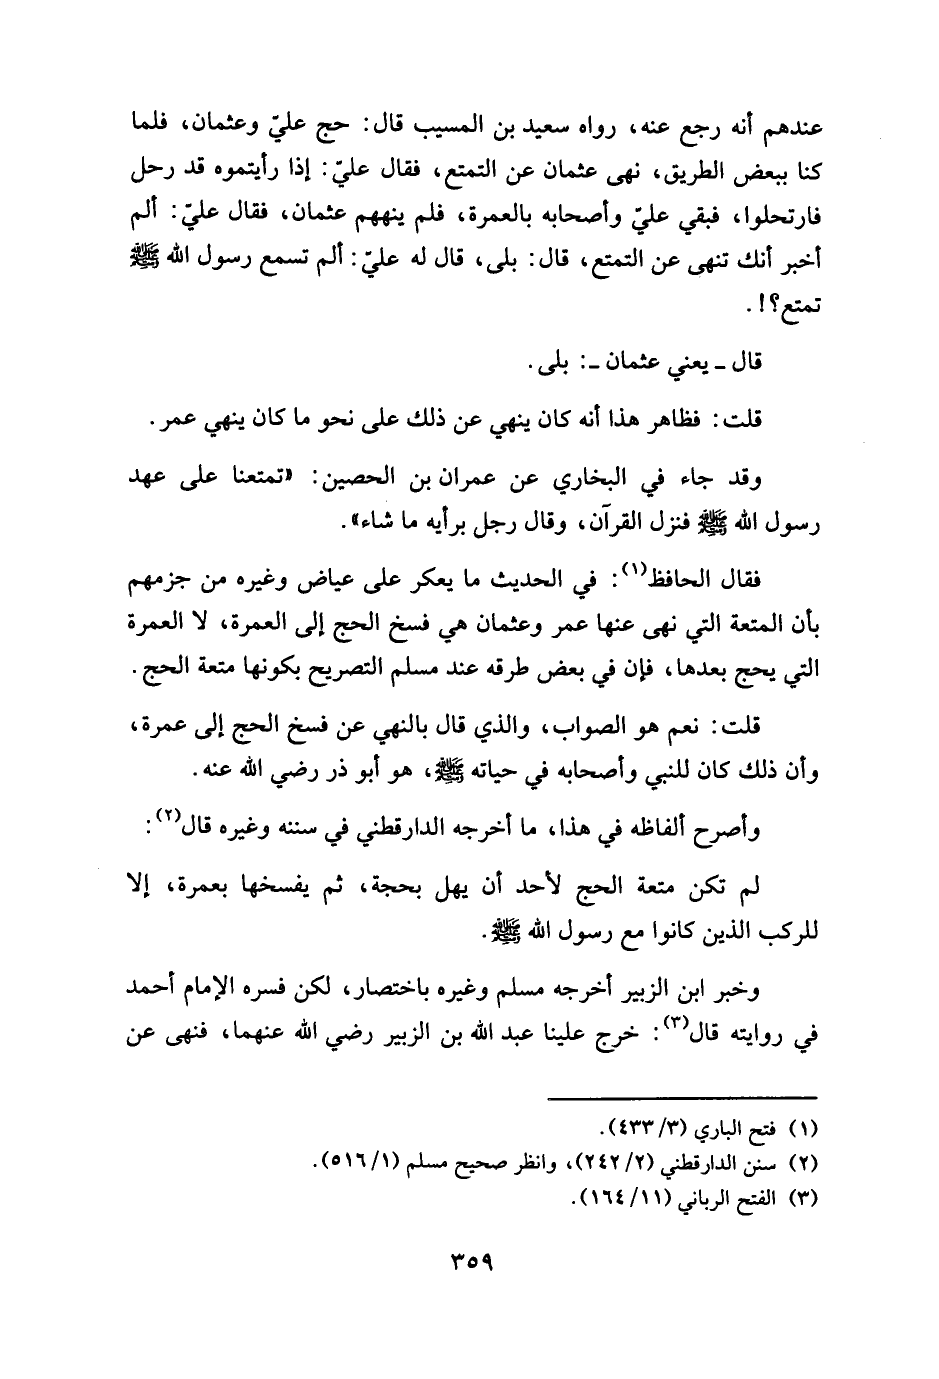 عندهم أنه رجع عنه، رواه سعيد بن المسيب قال: حج عليّ وعثمان، فلما
كنا ببعض الطريق، نهى عثمان عن التمتع، فقال عليّ: إذا رأيتموه قد رحل
فارتحلوا، فبقي عليّ وأصحابه بالعمرة، فلم ينههم عثمان، فقال عليّ: ألم
أخبر أنك تنهى عن التمتع، قال: بلى، قال له عليّ: ألم تسمع رسول الله ﷺ
تمتع؟!.
قال ـ يعني عثمان ـ: بلى.
قلت: فظاهر هذا أنه كان ينهي عن ذلك على نحو ما كان ينهي عمر.
وقد جاء في البخاري عن عمران بن الحصين: «تمتعنا على عهد
رسول الله ﷺ فنزل القرآن، وقال رجل برأيه ما شاء».
فقال الحافظ(١): في الحديث ما يعكر على عياض وغيره من جزمهم
بأن المتعة التي نهى عنها عمر وعثمان هي فسخ الحج إلى العمرة، لا العمرة
التي يحج بعدها، فإن في بعض طرقه عند مسلم التصريح بكونها متعة الحج.
قلت: نعم هو الصواب، والذي قال بالنهي عن فسخ الحج إلى عمرة،
وأن ذلك كان للنبي وأصحابه في حياته ﷺ، هو أبو ذر رضي الله عنه.
وأصرح ألفاظه في هذا، ما أخرجه الدارقطني في سننه وغيره قال(٢):
لم تكن متعة الحج لأحد أن يهل بحجة، ثم يفسخها بعمرة، إلا
للركب الذين كانوا مع رسول الله ﷺ.
وخبر ابن الزبير أخرجه مسلم وغيره باختصار، لكن فسره الإمام أحمد
في روايته قال(٣): خرج علينا عبد الله بن الزبير رضي الله عنهما، فنهى عن
(١) فتح الباري (٣/ ٤٣٣).
(٢) سنن الدارقطني (٢/ ٢٤٢)، وانظر صحيح مسلم (١/ ٥١٦).
(٣) الفتح الرباني (١١/ ١٦٤).
٣٥٩